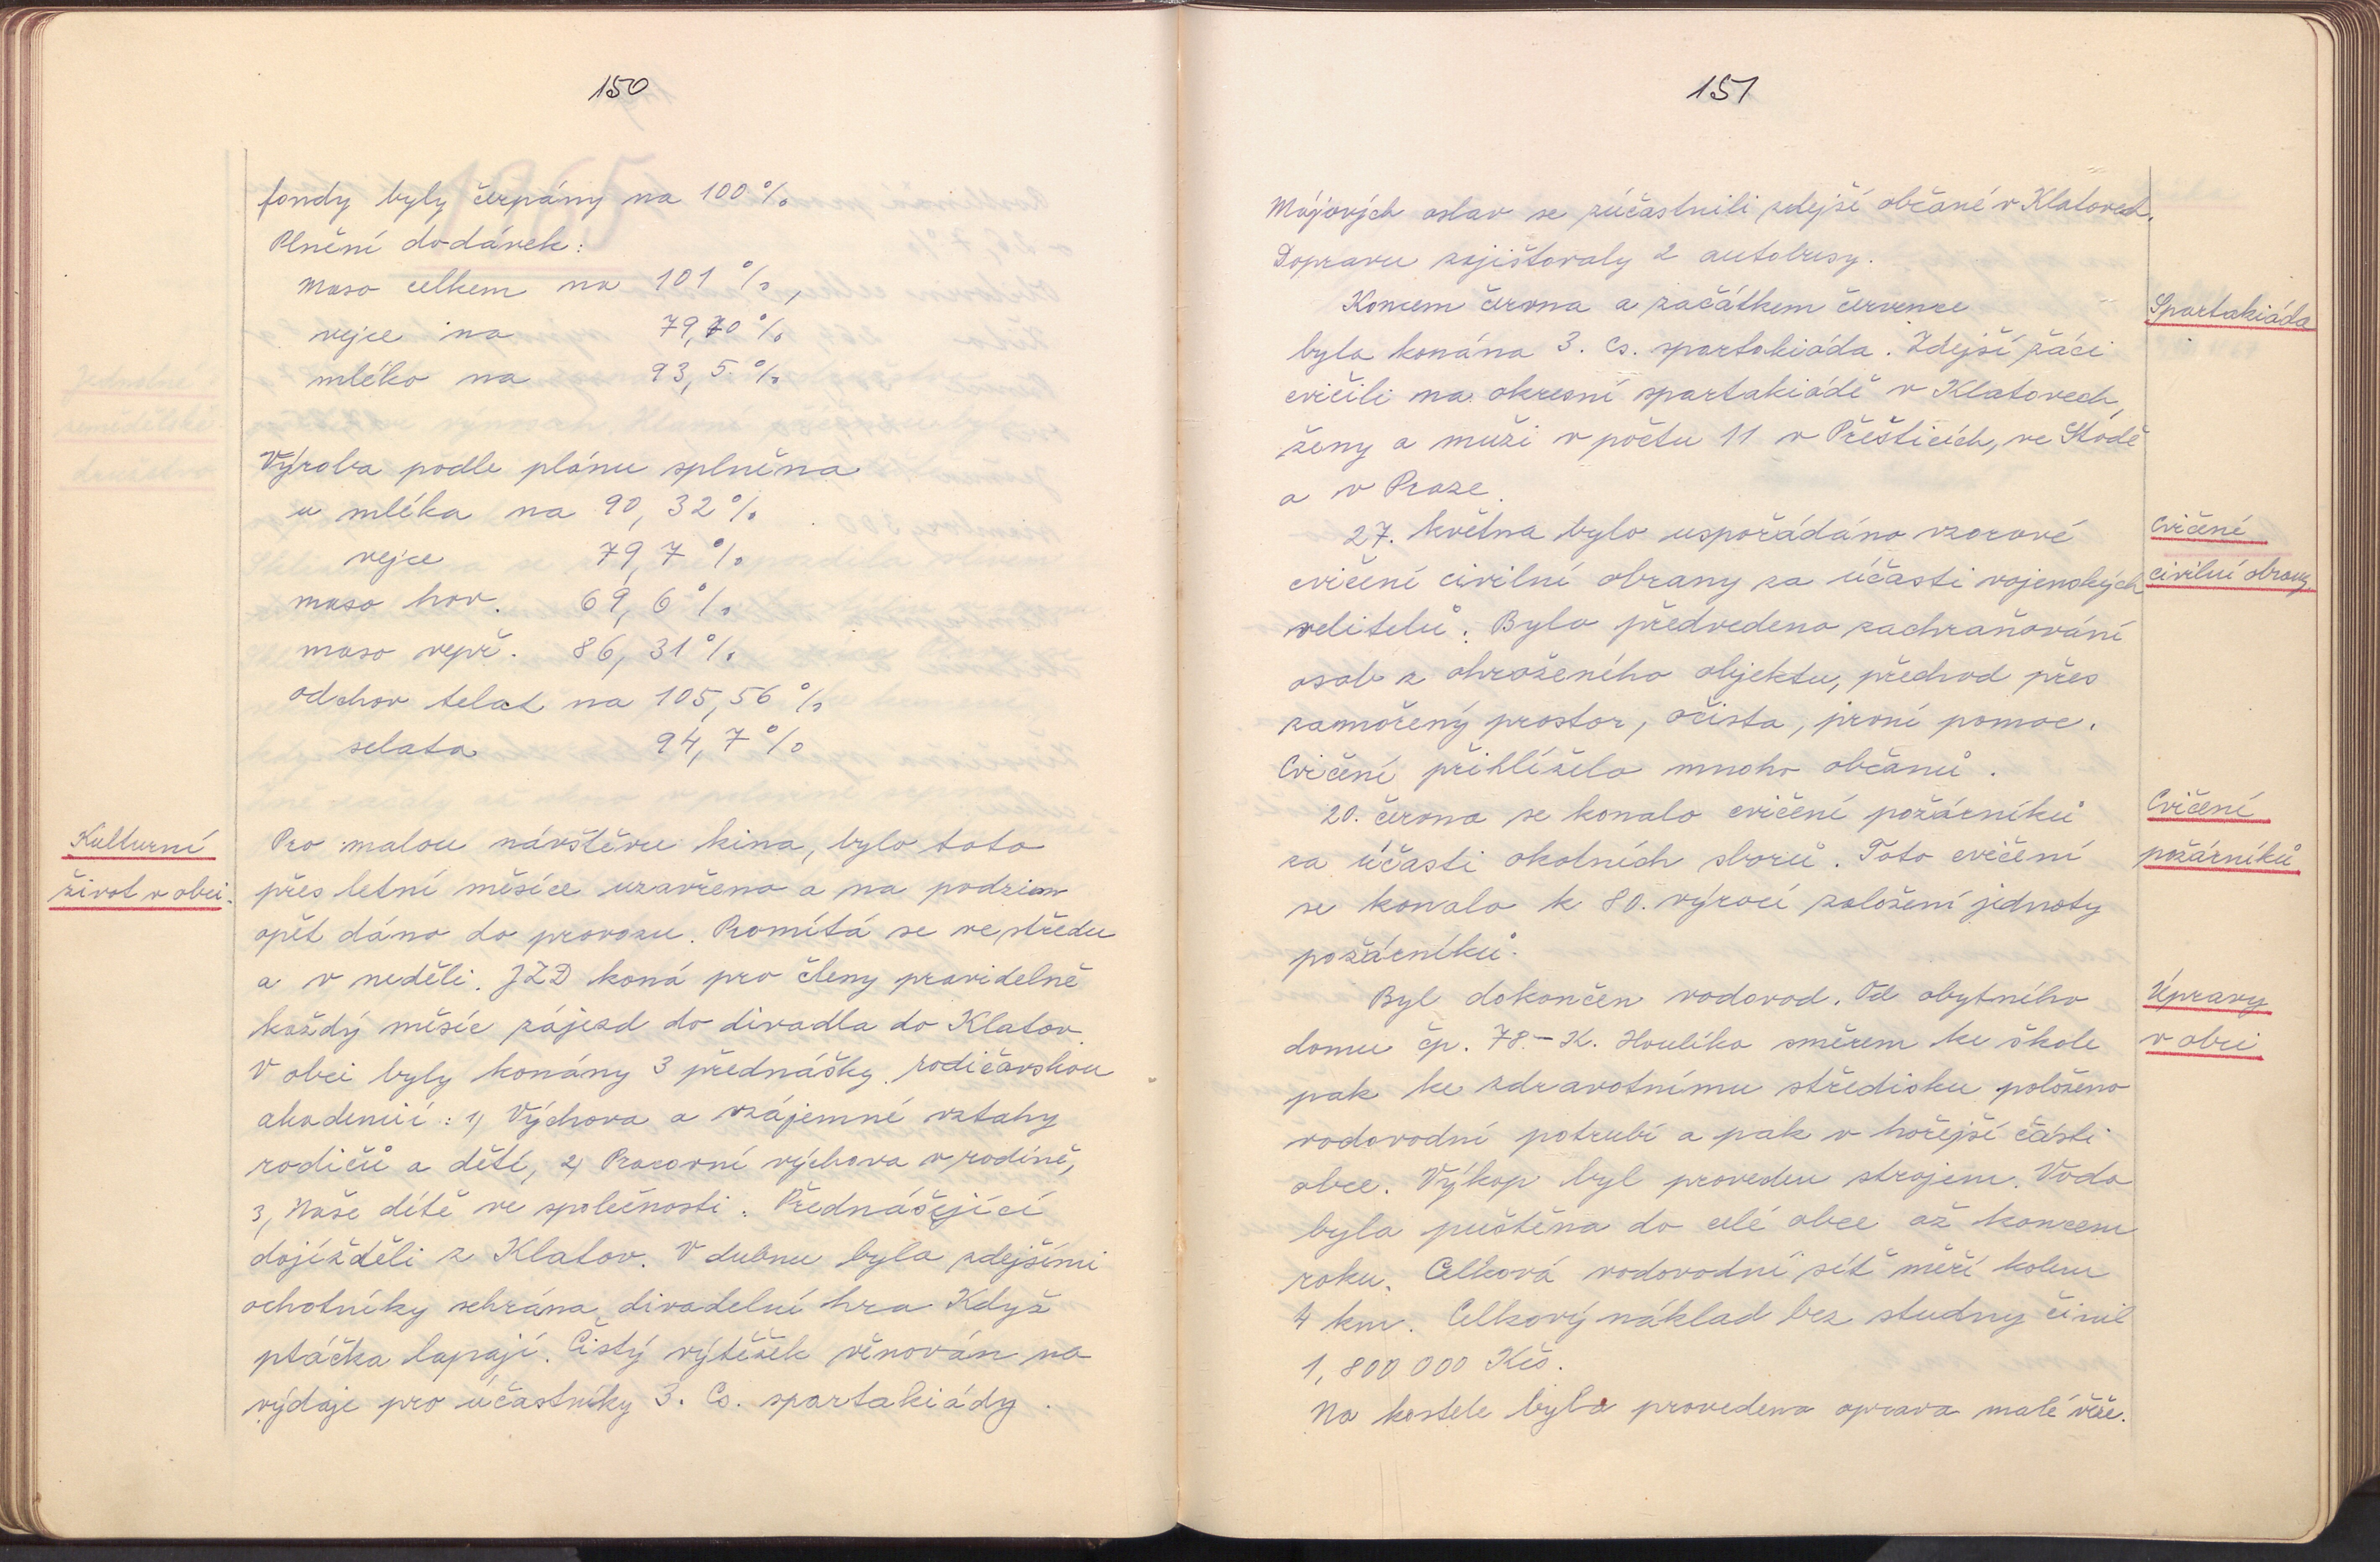 150
fondy byly čerpány na 100 %
Plnění dodávek:
maso celkem na 101 %,
vejce na 79,70 %
mléko na 93,5 %
Výroba podle plánu splněna
u mléka na 90,32 %
vejce 79,7 %
maso hov. 69,6 %
maso vepř. 86,31 %
odchov telat na 105,56 %
selata 94,7 %
Kulturní
život v obci.
Pro malou návštěvu kina, bylo toto
přes letní měsíce uzavřeno a na podzim
opět dáno do provozu. Promítá se ve středu
a v neděli. JZD koná pro členy pravidelně
každý měsíc zájezd do divadla do Klatov.
V obci byly konány 3 přednášky rodičovskou
akademií: 1) Výchova a vzájemné vztahy
rodičů a dětí, 2) Pracovní výchova v rodině,
3, Naše dítě ve společnosti. Přednášející
dojížděli z Klatov. V dubnu byla zdejšími
ochotníky sehrána divadelní hra Když
ptáčka lapají. Čistý výtěžek věnován na
výdaje pro účastníky 3. Cs. spartakiády.
151
Májových oslav se zúčastnili zdejší občané v Klatovech.
Dopravu zajištovaly 2 autobusy.
Spartakiáda
Koncem června a začátkem července
byla konána 3. Cs. spartakiáda. Zdejší žáci
cvičili na okresní spartakiádě v Klatovech,
ženy a muži v počtu 11 v Přešticích, ve Stodě
a v Praze.
Cvičení
civilní obrany
27. května bylo uspořádáno vzorové
cvičení civilní obrany za účasti vojenských
velitelů. Bylo předvedeno zachraňování
osob z ohroženého objektu, přechod přes
zamořený prostor, očista, první pomoc.
Cvičení přihlíželo mnoho občanů.
Cvičení
požárníků
20. června se konalo cvičení požárníků
za účasti okolních sborů. Toto cvičení
se konalo k 80. výročí založení jednoty
požárníků.
Úpravy
v obci
Byl dokončen vodovod. Od obytného
domu čp. 78 - K. Houlíka směrem ke škole
pak ke zdravotnímu středisku položeno
vodovodní potrubí a pak v hořejší části
obce. Výkop byl proveden strojem. Voda
byla puštěna do celé obce až koncem
roku. Celková vodovodní síť měří kolem
4 km. Celkový náklad bez studny činil
1,800 000 Kčs.
Na kostele byla provedena oprava malé věže.